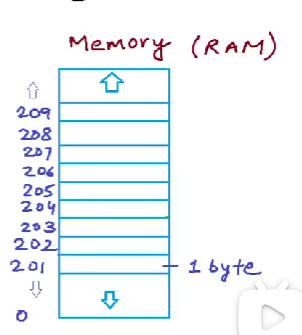 Memory (RAM)
209
208
207
206
205
204
203
202
201
1 byte
0